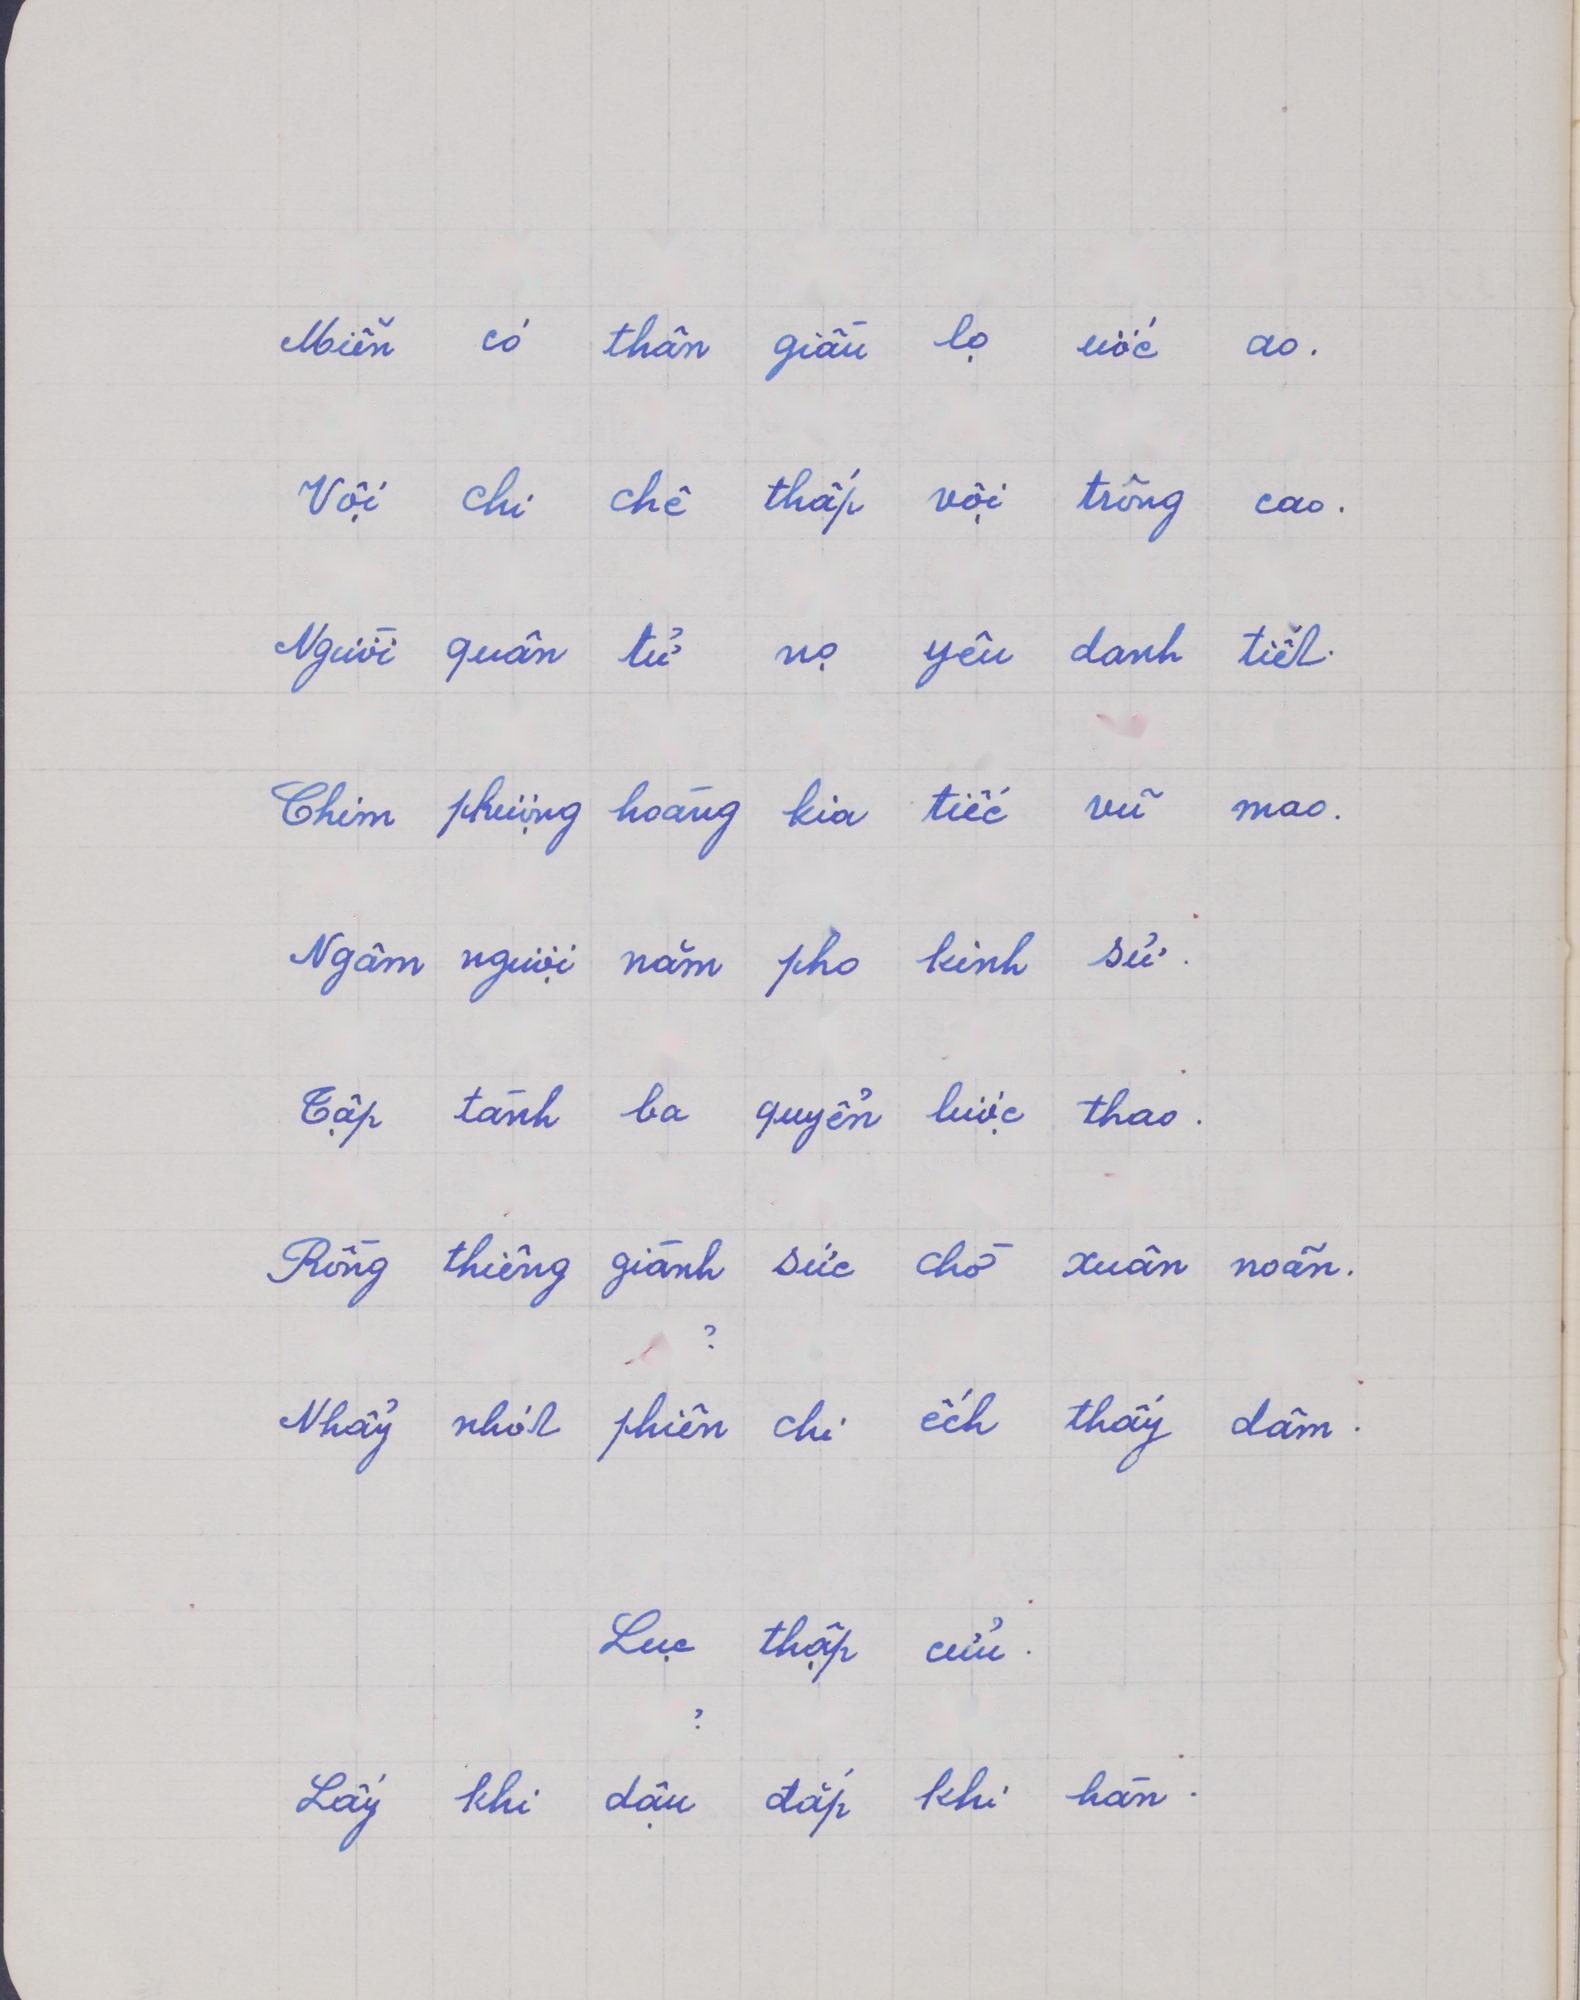 Miễn có thân giầu lọ ước ao.
Vội chi chê thấp vội trông cao.
Người quân tử nọ yêu danh tiết.
Chim phượng hoàng kia tiếc vũ mao.
Ngâm ngượi năm pho kinh sử.
Tập tành ba quyển lược thao.
Rồng thiêng giành sức chờ xuân noãn.
?
Nhẩy nhót phiên chi ếch thấy dâm.
Lục thập cửu.
?
Lấy khi dậu đắp khi hàn.